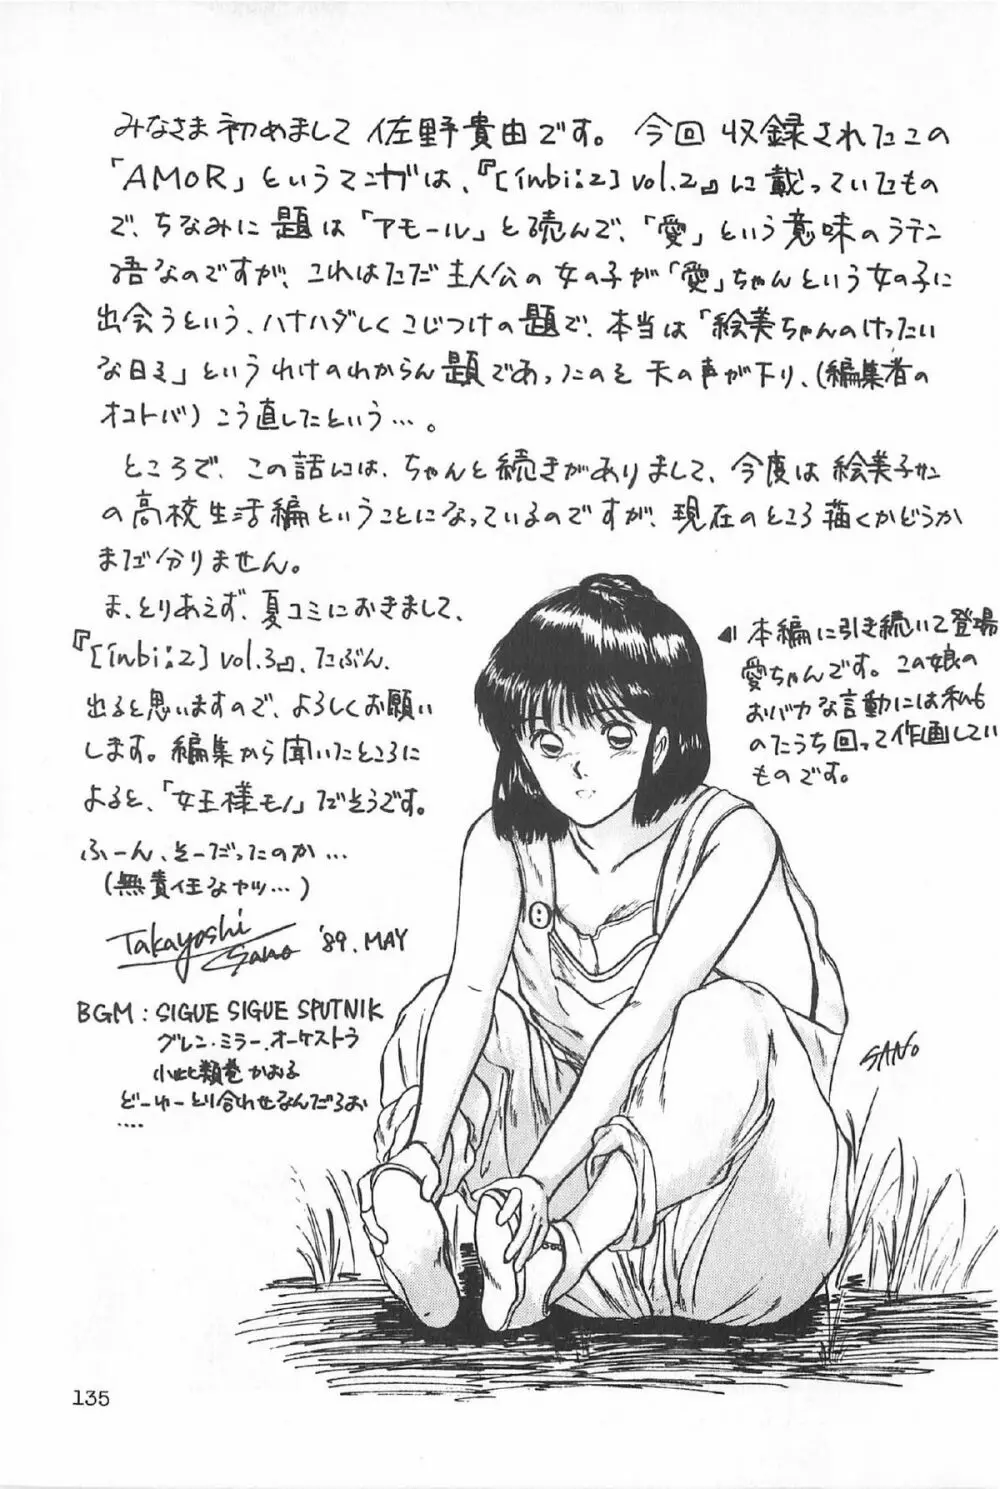 みなさま初めまして佐野貴由です。今回収録されたこの
「AMOR」というマンガは、『[inbi:z] vol.2』に載っていたもの
で、ちなみに題は「アモール」と読んで、「愛」という意味のラテン
語なのですが、これはただ主人公の女の子が「愛」ちゃんという女の子に
出会うという、ハナハダしくこじつけの題で、本当は「絵美ちゃんのけったい
な日々」というわけのわからん題であったのを天の声が下り、(編集者の
オコトバ)こう直したという…。
ところで、この話には、ちゃんと続きがありまして、今度は絵美子サン
の高校生活編ということになっているのですが、現在のところ描くかどうか
まだ分りません。
ま、とりあえず、夏コミにおきまして、
『[inbi:z] vol.3』、たぶん、
出ると思いますので、よろしくお願い
します。編集から聞いたところに
よると、「女王様モノ」だそうです。
ふーん、そーだったのか…
(無責任なヤツ…)
Takayoshi
Sano '89. MAY
BGM: SIGUE SIGUE SPUTNIK
グレン・ミラー・オーケストラ
小比類巻かおる
どーゆーとり合わせなんだろお
‥‥
◀本編に引き続いて登場
愛ちゃんです。この娘の
おバカな言動には私も
のたうち回って作画してい
ものです。
SANO
135